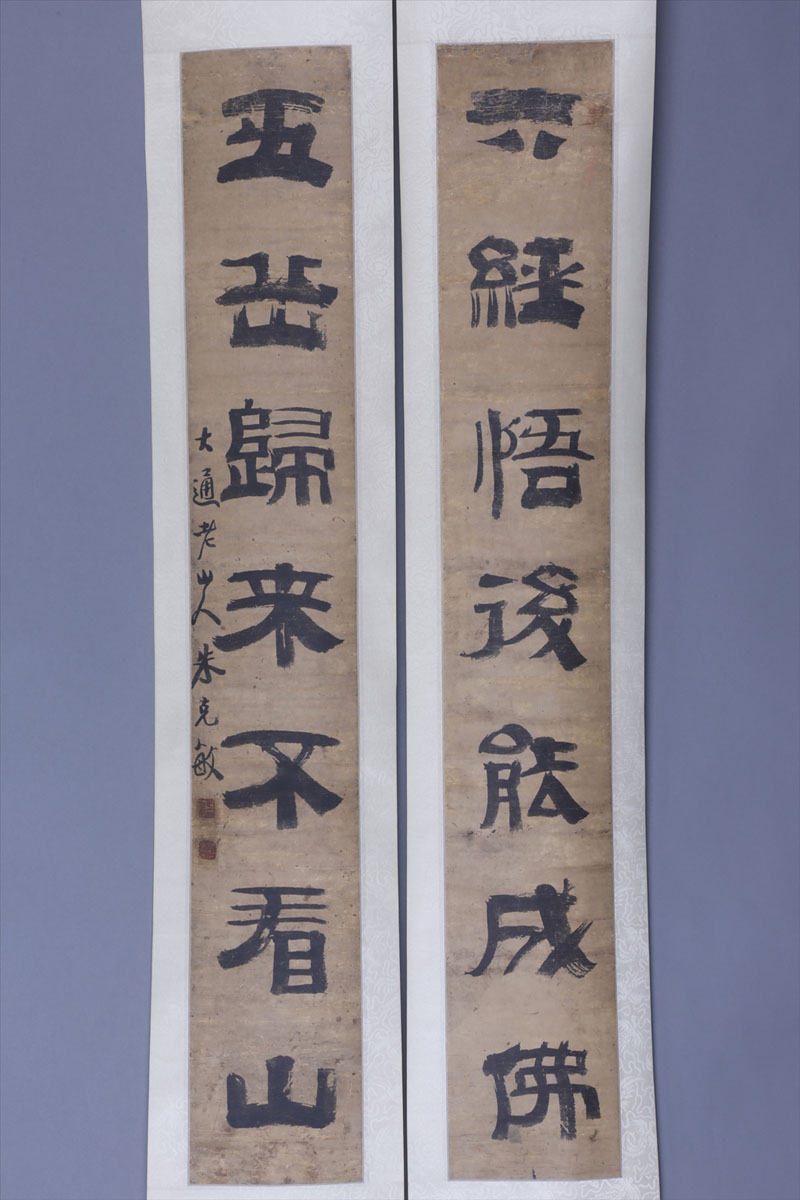 六經悟後能成佛
五岳歸来不看山
大通老山人朱克敏